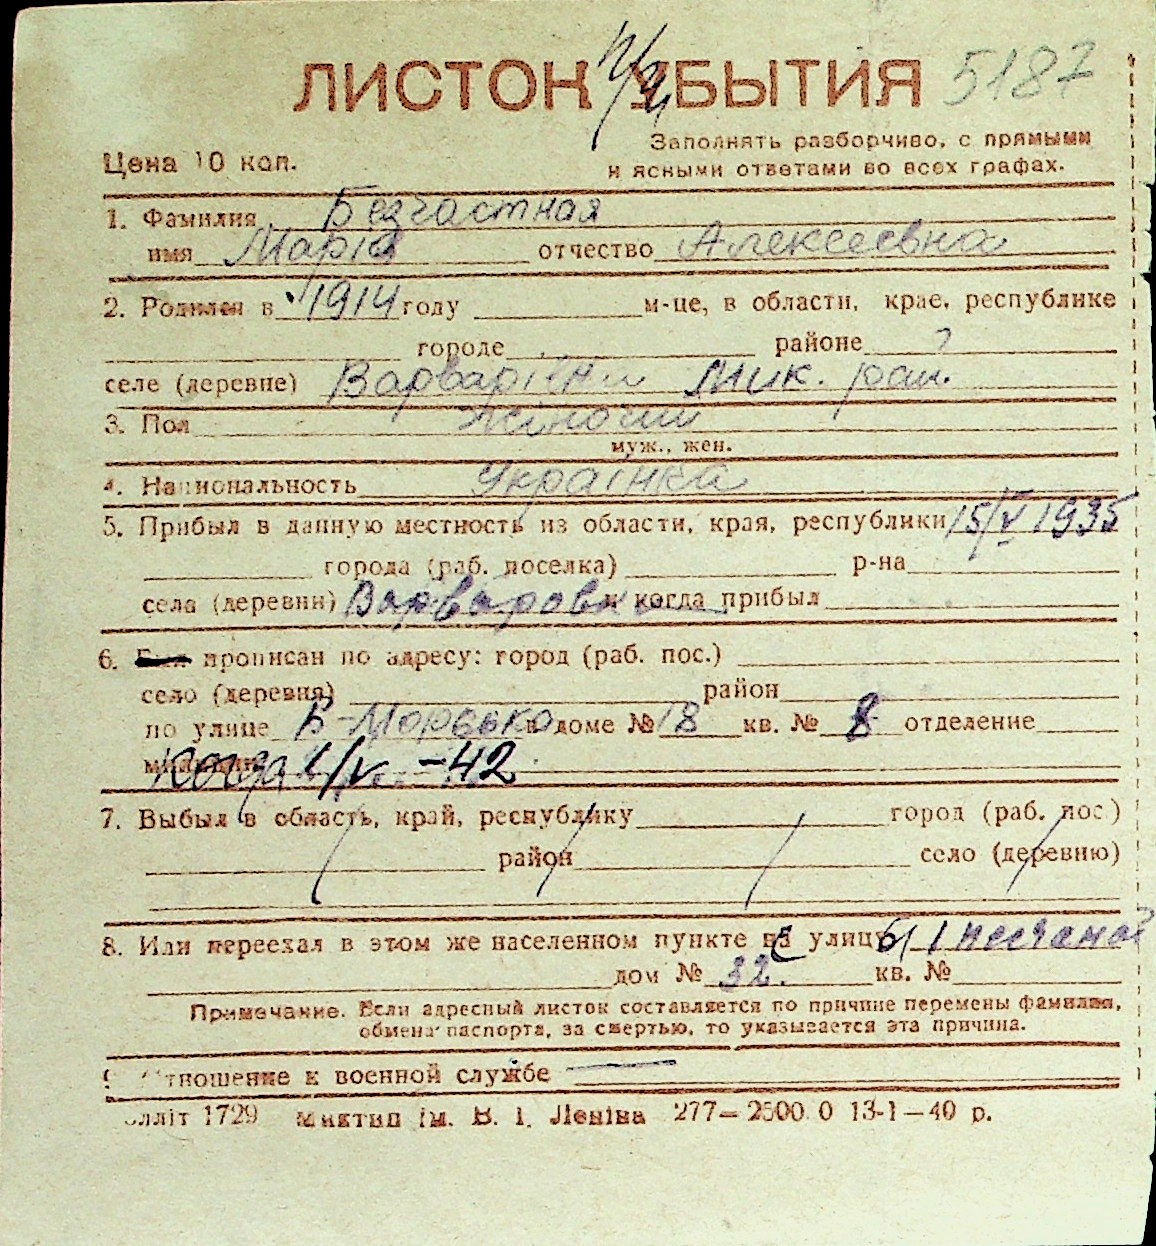 ЛИСТОК УБЫТИЯ 5187
Цена 10 коп.
Заполнять разборчиво, с прямыми
и ясными ответами во всех графах.
1. Фамилия Безчастная
имя Марія отчество Алексеевна
2. Родился в 1914 году м-це, в области, крае, республике
городе районе ?
селе (деревне) Варварівки Мик. рай.
3. Пол жіночий
муж., жен.
4. Национальность Українка
5. Прибыл в данную местность из области, края, республики 15/V 1935
города (раб. поселка) р-на
села (деревни) Варваровка и когда прибыл
6. Был прописан по адресу: город (раб. пос.)
село (деревня) район
по улице Б-Морська в доме № 18 кв. № 8 отделение
милиции Когда -42
7. Выбыл в область, край, республику город (раб. пос.)
район село (деревню)
8. Или переехал в этом же населенном пункте на улицу песчаной
дом № 32. кв. №
Примечание. Если адресный листок составляется по причине перемены фамилии,
обмена паспорта, за смертью, то указывается эта причина.
Отношение к военной службе —
лліт 1729 Миктип ім. В. І. Леніна 277—2500.0 13-1—40 р.